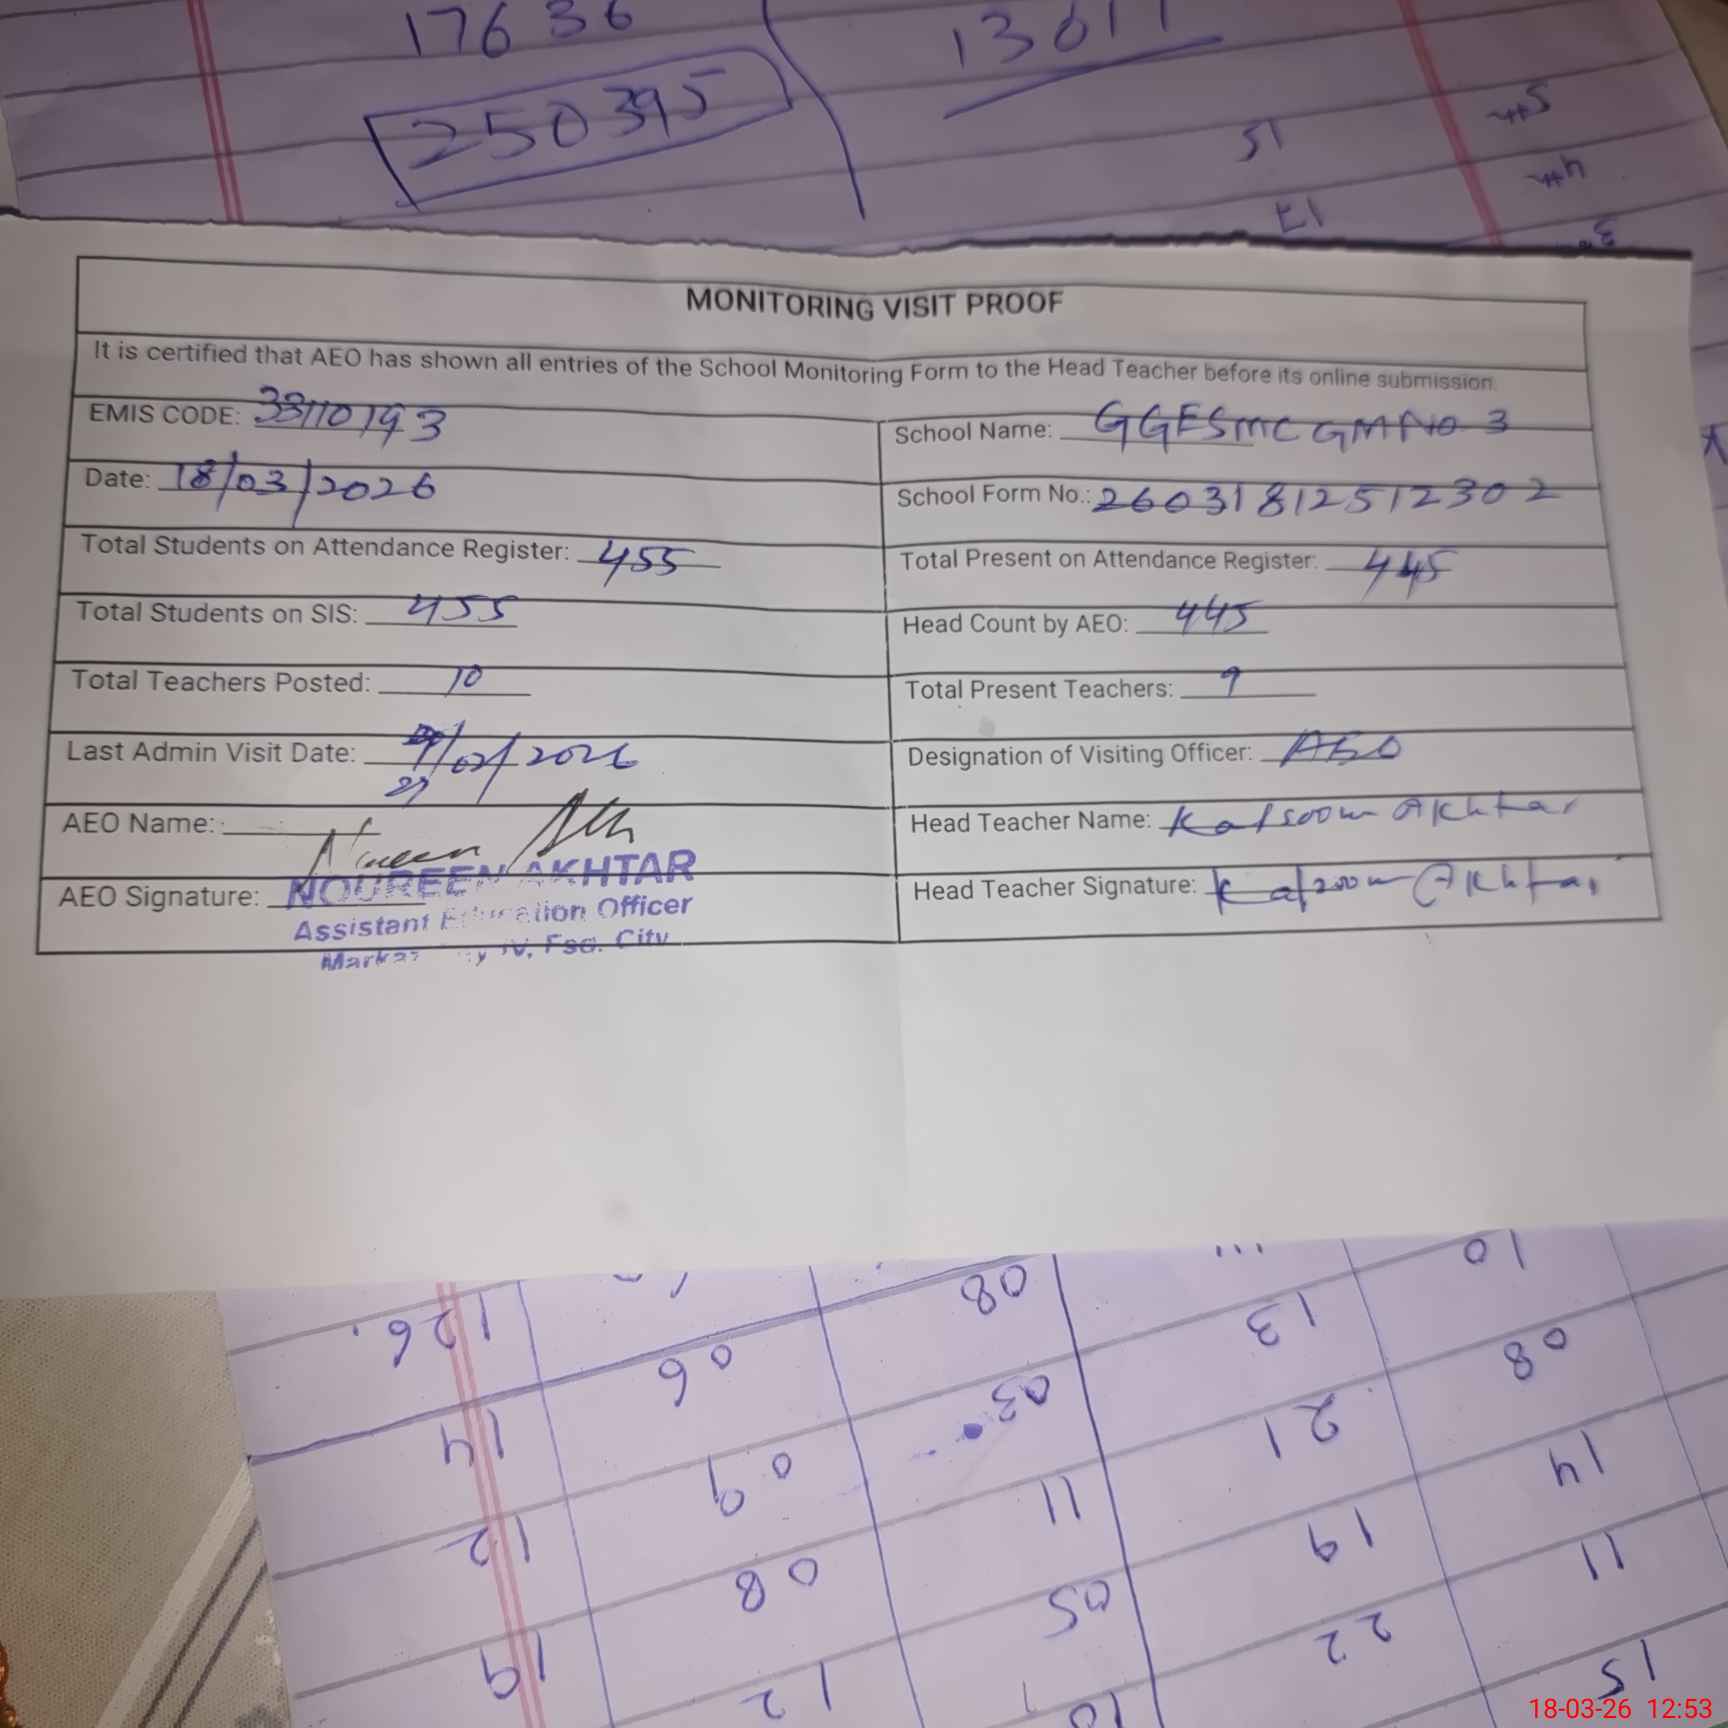 17636
13011
250395
15
5th
4th
17
MONITORING VISIT PROOF
It is certified that AEO has shown all entries of the School Monitoring Form to the Head Teacher before its online submission.
EMIS CODE: 33110193
School Name: GGESMC GM No 3
Date: 18/03/2026
School Form No.: 26031812512302
Total Students on Attendance Register: 455
Total Present on Attendance Register: 445
Total Students on SIS: 455
Head Count by AEO: 445
Total Teachers Posted: 10
Total Present Teachers: 9
Last Admin Visit Date: 27/02/2026
Designation of Visiting Officer: AEO
AEO Name: Noureen Akh
Head Teacher Name: Kalsoom Akhtar
AEO Signature: NOUREEN AKHTAR
Head Teacher Signature: Kalsoom Akhtar
Assistant Education Officer
City
10
08
126.
13
06
08
03
14
21
09
14
11
12
19
08
11
05
19
22
12
15
10
18-03-26 12:53